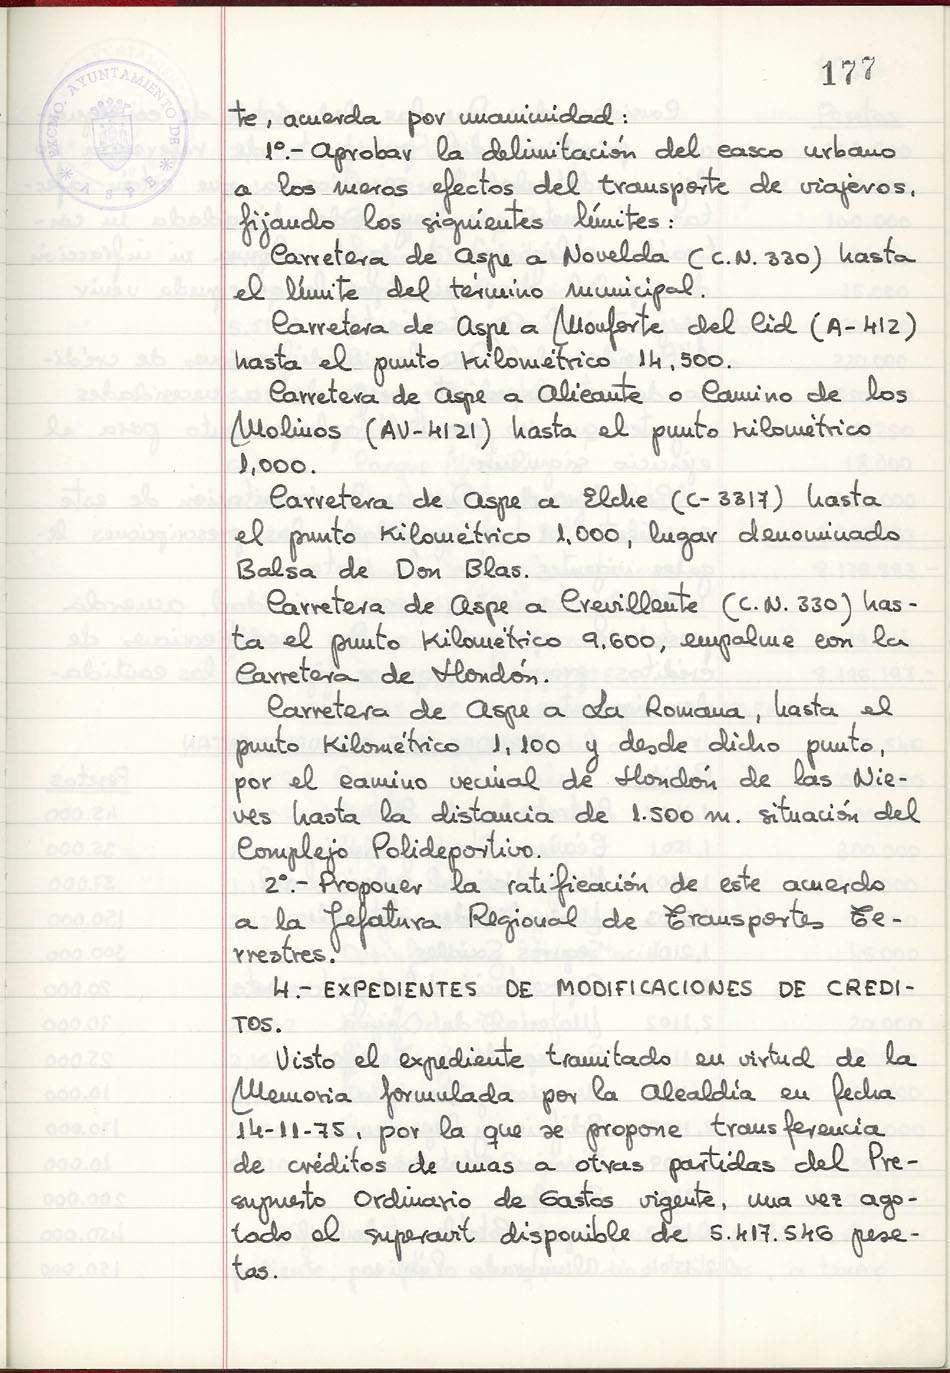 177
EXCMO. AYUNTAMIENTO DE
* ASPE *
te, acuerda por unanimidad:
1º.- Aprobar la delimitación del casco urbano
a los meros efectos del transporte de viajeros,
fijando los siguientes límites:
Carretera de Aspe a Novelda (C.N. 330) hasta
el límite del término municipal.
Carretera de Aspe a Monforte del Cid (A-412)
hasta el punto Kilométrico 14,500.
Carretera de Aspe a Alicante o Camino de los
Molinos (AV-4121) hasta el punto Kilométrico
1,000.
Carretera de Aspe a Elche (C-3317) hasta
el punto Kilométrico 1,000, lugar denominado
Balsa de Don Blas.
Carretera de Aspe a Crevillente (C.N. 330) has-
ta el punto Kilométrico 9.600, empalme con la
Carretera de Hondón.
Carretera de Aspe a La Romana, hasta el
punto Kilométrico 1,100 y desde dicho punto,
por el camino vecinal de Hondón de las Nie-
ves hasta la distancia de 1.500 m. situación del
Complejo Polideportivo.
2º.- Proponer la ratificación de este acuerdo
a la Jefatura Regional de Transportes Te-
rrestres.
4.- EXPEDIENTES DE MODIFICACIONES DE CREDI-
TOS.
Visto el expediente tramitado en virtud de la
Memoria formulada por la Alcaldía en fecha
14-11-75, por la que se propone transferencia
de créditos de unas a otras partidas del Pre-
supuesto Ordinario de Gastos vigente, una vez ago-
tado el superavit disponible de 5.417.546 pese-
tas.